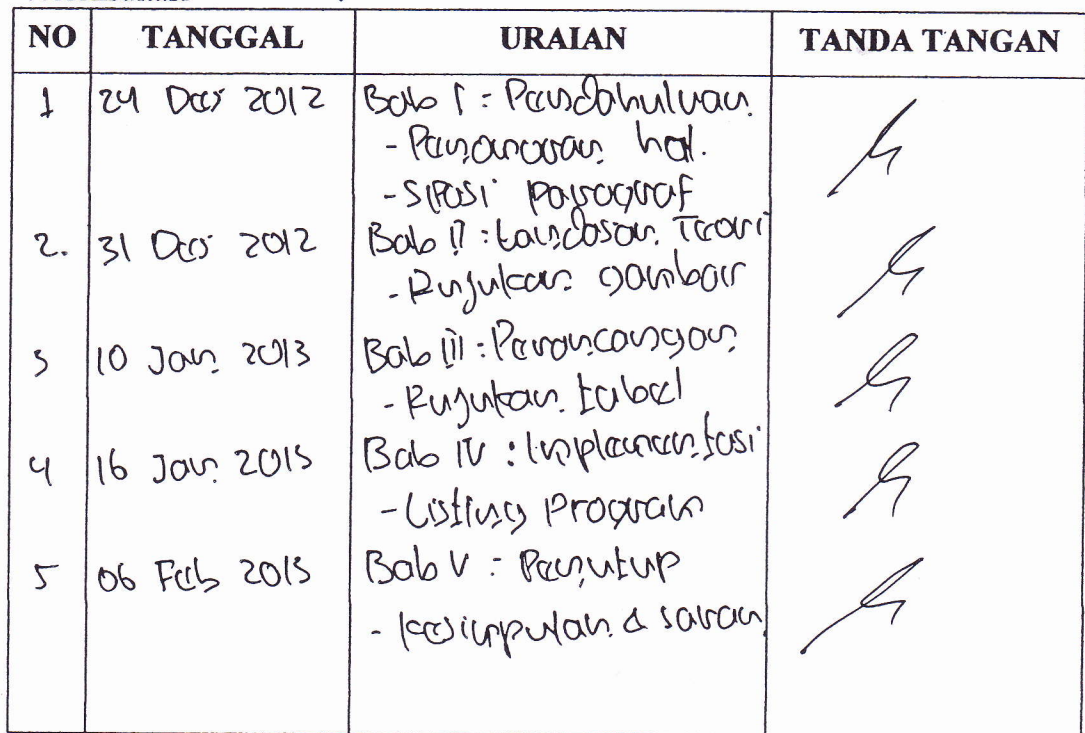 NO TANGGAL URAIAN TANDA TANGAN
1 24 Des 2012 Bab I : Pendahuluan
- Penomoran hal.
- Spasi paragraf
2. 31 Des 2012 Bab II : Landasan Teori
- Rujukan gambar
3 10 Jan 2013 Bab III : Perancangan
- Rujukan tabel
4 16 Jan 2013 Bab IV : Implementasi
- Listing Program
5 06 Feb 2013 Bab V : Penutup
- Kesimpulan & saran